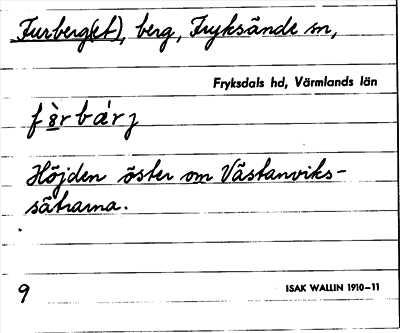 Furberg(et), berg, Fryksände sn,
Fryksdals hd, Värmlands län
Höjden öster om Västanviks-
sätrarna.
9
ISAK WALLIN 1910–11